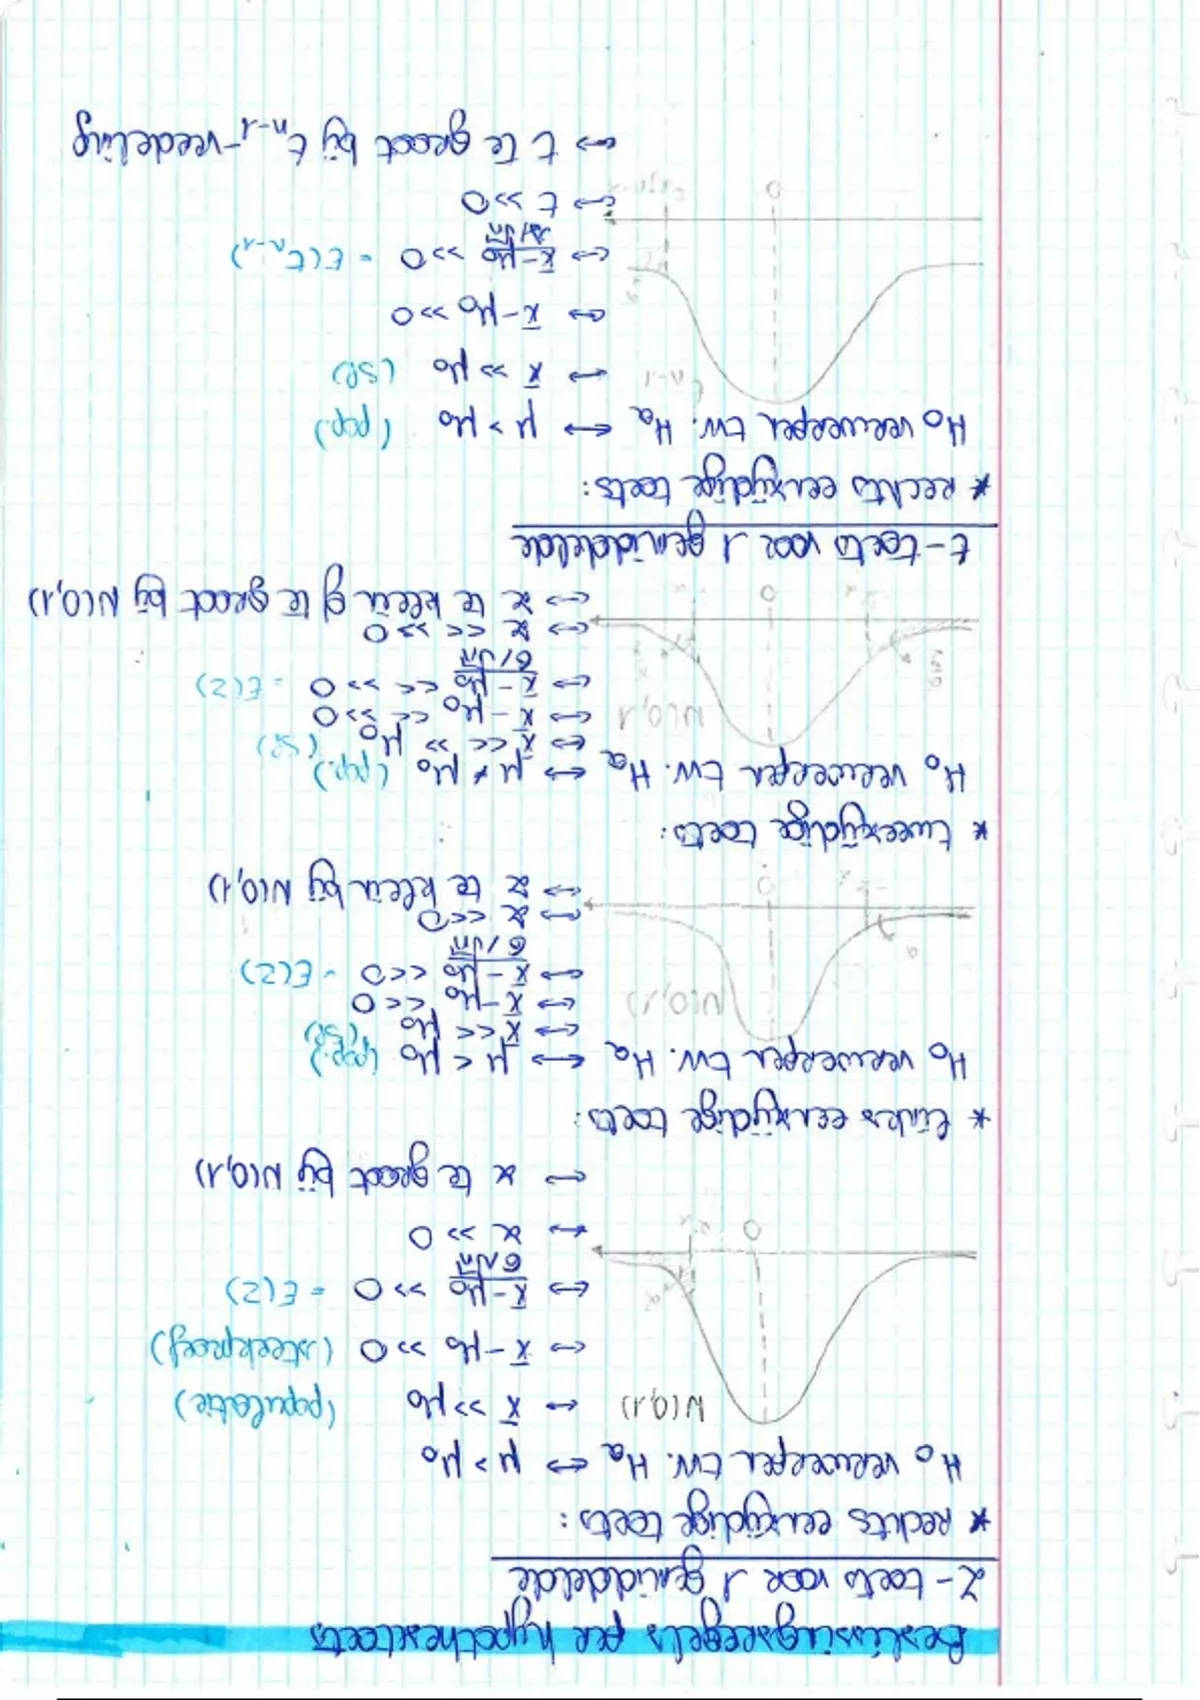 Beslissingsregels per hypothesetoets
Z-toets voor 1 gemiddelde
* Rechts eenzijdige toets:
H₀ verwerpen t.w. Hₐ ⟷ μ > μ₀
N(0,1) ⟷ x̄ >> μ₀ (populatie)
⟷ x̄ - μ₀ >> 0 (steekproef)
⟷ (x̄ - μ₀)/(σ/√n) >> 0 = E(Z)
⟷ z >> 0
0
⟷ z te groot bij N(0,1)
* links eenzijdige toets:
H₀ verwerpen t.w. Hₐ ⟷ μ < μ₀ (pop.)
⟷ x̄ << μ₀ (SP)
N(0,1) ⟷ x̄ - μ₀ << 0
⟷ (x̄ - μ₀)/(σ/√n) << 0 = E(Z)
α
⟷ z << 0
⟷ z te klein bij N(0,1)
0
* tweezijdige toets:
H₀ verwerpen t.w. Hₐ ⟷ μ ≠ μ₀ (pop.)
⟷ x̄ << >> μ₀ (SP)
N(0,1) ⟷ x̄ - μ₀ << >> 0
⟷ (x̄ - μ₀)/(σ/√n) << >> 0 = E(Z)
⟷ z << >> 0
⟷ z te klein of te groot bij N(0,1)
0
t-toets voor 1 gemiddelde
* rechts eenzijdige toets:
H₀ verwerpen t.w. Hₐ ⟷ μ > μ₀ (pop.)
tₙ₋₁ ⟷ x̄ >> μ₀ (SP)
⟷ x̄ - μ₀ >> 0
⟷ (x̄ - μ₀)/(sₓ/√n) >> 0 = E(tₙ₋₁)
⟷ t >> 0
0
⟷ t te groot bij tₙ₋₁-verdeling